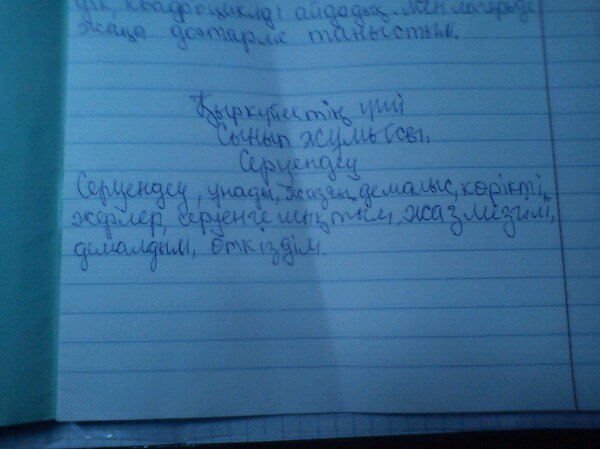 дік, квадроциклді айдадық. Мен лагерьде
жаңа достармен таныстым.
Қыркүйектің үші
Сынып жұмысы.
Серуендеу
Серуендеу, ұнады, жазғы демалыс, көрікті
жерлер, серуенге шықтым, жаз мезгілі,
демалдым, өткіздім.